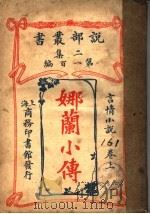 說部叢書
二集
第一百編
言情小說
161
卷上
娜蘭小傳
上海商務印書館發行